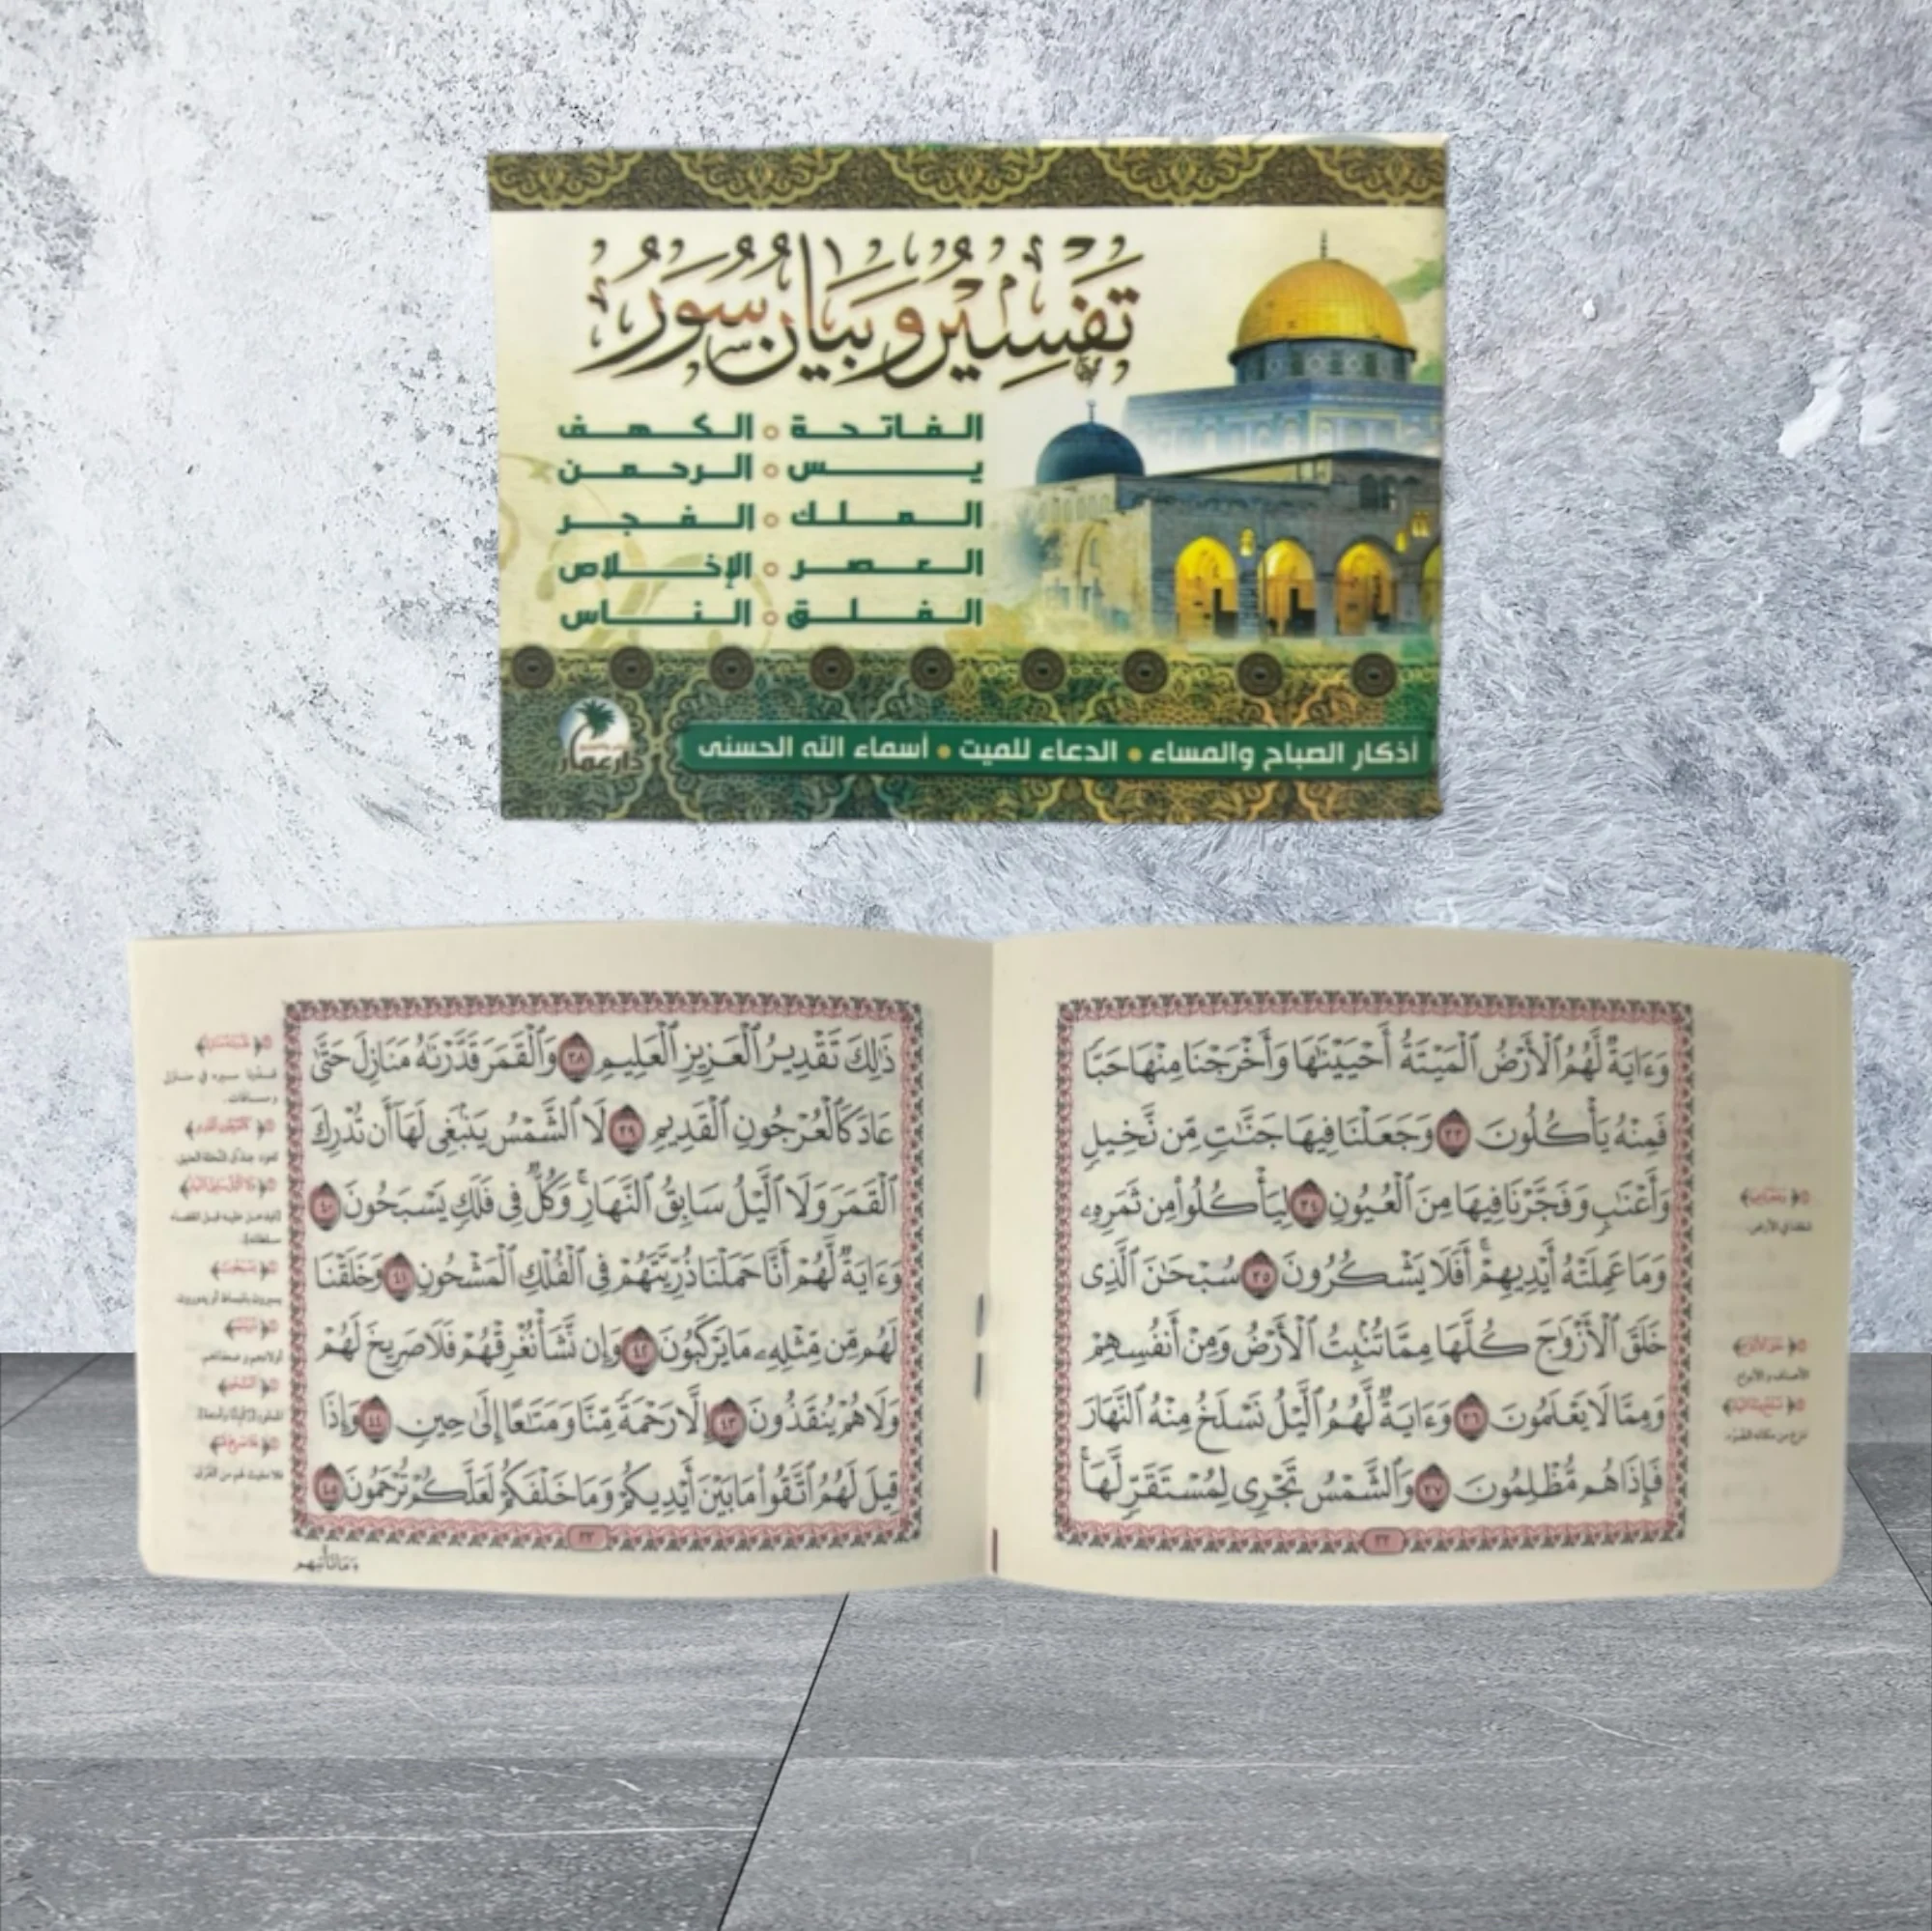 تَفْسِيرُ وبَيَان سُوَرُ
الفاتحة • الكهف
يس • الرحمن
الملك • الفجر
العصر • الإخلاص
الفلق • الناس
أذكار الصباح والمساء • الدعاء للميت • أسماء الله الحسنى
دار عمار
وَءَايَةٌ لَّهُمُ ٱلْأَرْضُ ٱلْمَيْتَةُ أَحْيَيْنَٰهَا وَأَخْرَجْنَا مِنْهَا حَبًّا
فَمِنْهُ يَأْكُلُونَ ٣٣ وَجَعَلْنَا فِيهَا جَنَّٰتٍ مِّن نَّخِيلٍ
وَأَعْنَٰبٍ وَفَجَّرْنَا فِيهَا مِنَ ٱلْعُيُونِ ٣٤ لِيَأْكُلُوا۟ مِن ثَمَرِهِۦ
وَمَا عَمِلَتْهُ أَيْدِيهِمْ ۖ أَفَلَا يَشْكُرُونَ ٣٥ سُبْحَٰنَ ٱلَّذِى
خَلَقَ ٱلْأَزْوَٰجَ كُلَّهَا مِمَّا تُنۢبِتُ ٱلْأَرْضُ وَمِنْ أَنفُسِهِمْ
وَمِمَّا لَا يَعْلَمُونَ ٣٦ وَءَايَةٌ لَّهُمُ ٱلَّيْلُ نَسْلَخُ مِنْهُ ٱلنَّهَارَ
فَإِذَا هُم مُّظْلِمُونَ ٣٧ وَٱلشَّمْسُ تَجْرِى لِمُسْتَقَرٍّ لَّهَا ۚ
٢٢
نزع من مكانه الضوء
ذَٰلِكَ تَقْدِيرُ ٱلْعَزِيزِ ٱلْعَلِيمِ ٣٨ وَٱلْقَمَرَ قَدَّرْنَٰهُ مَنَازِلَ حَتَّىٰ
عَادَ كَٱلْعُرْجُونِ ٱلْقَدِيمِ ٣٩ لَا ٱلشَّمْسُ يَنۢبَغِى لَهَآ أَن تُدْرِكَ
ٱلْقَمَرَ وَلَا ٱلَّيْلُ سَابِقُ ٱلنَّهَارِ ۚ وَكُلٌّ فِى فَلَكٍ يَسْبَحُونَ ٤٠
وَءَايَةٌ لَّهُمْ أَنَّا حَمَلْنَا ذُرِّيَّتَهُمْ فِى ٱلْفُلْكِ ٱلْمَشْحُونِ ٤١ وَخَلَقْنَا
لَهُم مِّن مِّثْلِهِۦ مَا يَرْكَبُونَ ٤٢ وَإِن نَّشَأْ نُغْرِقْهُمْ فَلَا صَرِيخَ لَهُمْ
وَلَا هُمْ يُنقَذُونَ ٤٣ إِلَّا رَحْمَةً مِّنَّا وَمَتَٰعًا إِلَىٰ حِينٍ ٤٤ وَإِذَا
قِيلَ لَهُمُ ٱتَّقُوا۟ مَا بَيْنَ أَيْدِيكُمْ وَمَا خَلْفَكُمْ لَعَلَّكُمْ تُرْحَمُونَ ٤٥
٢٣